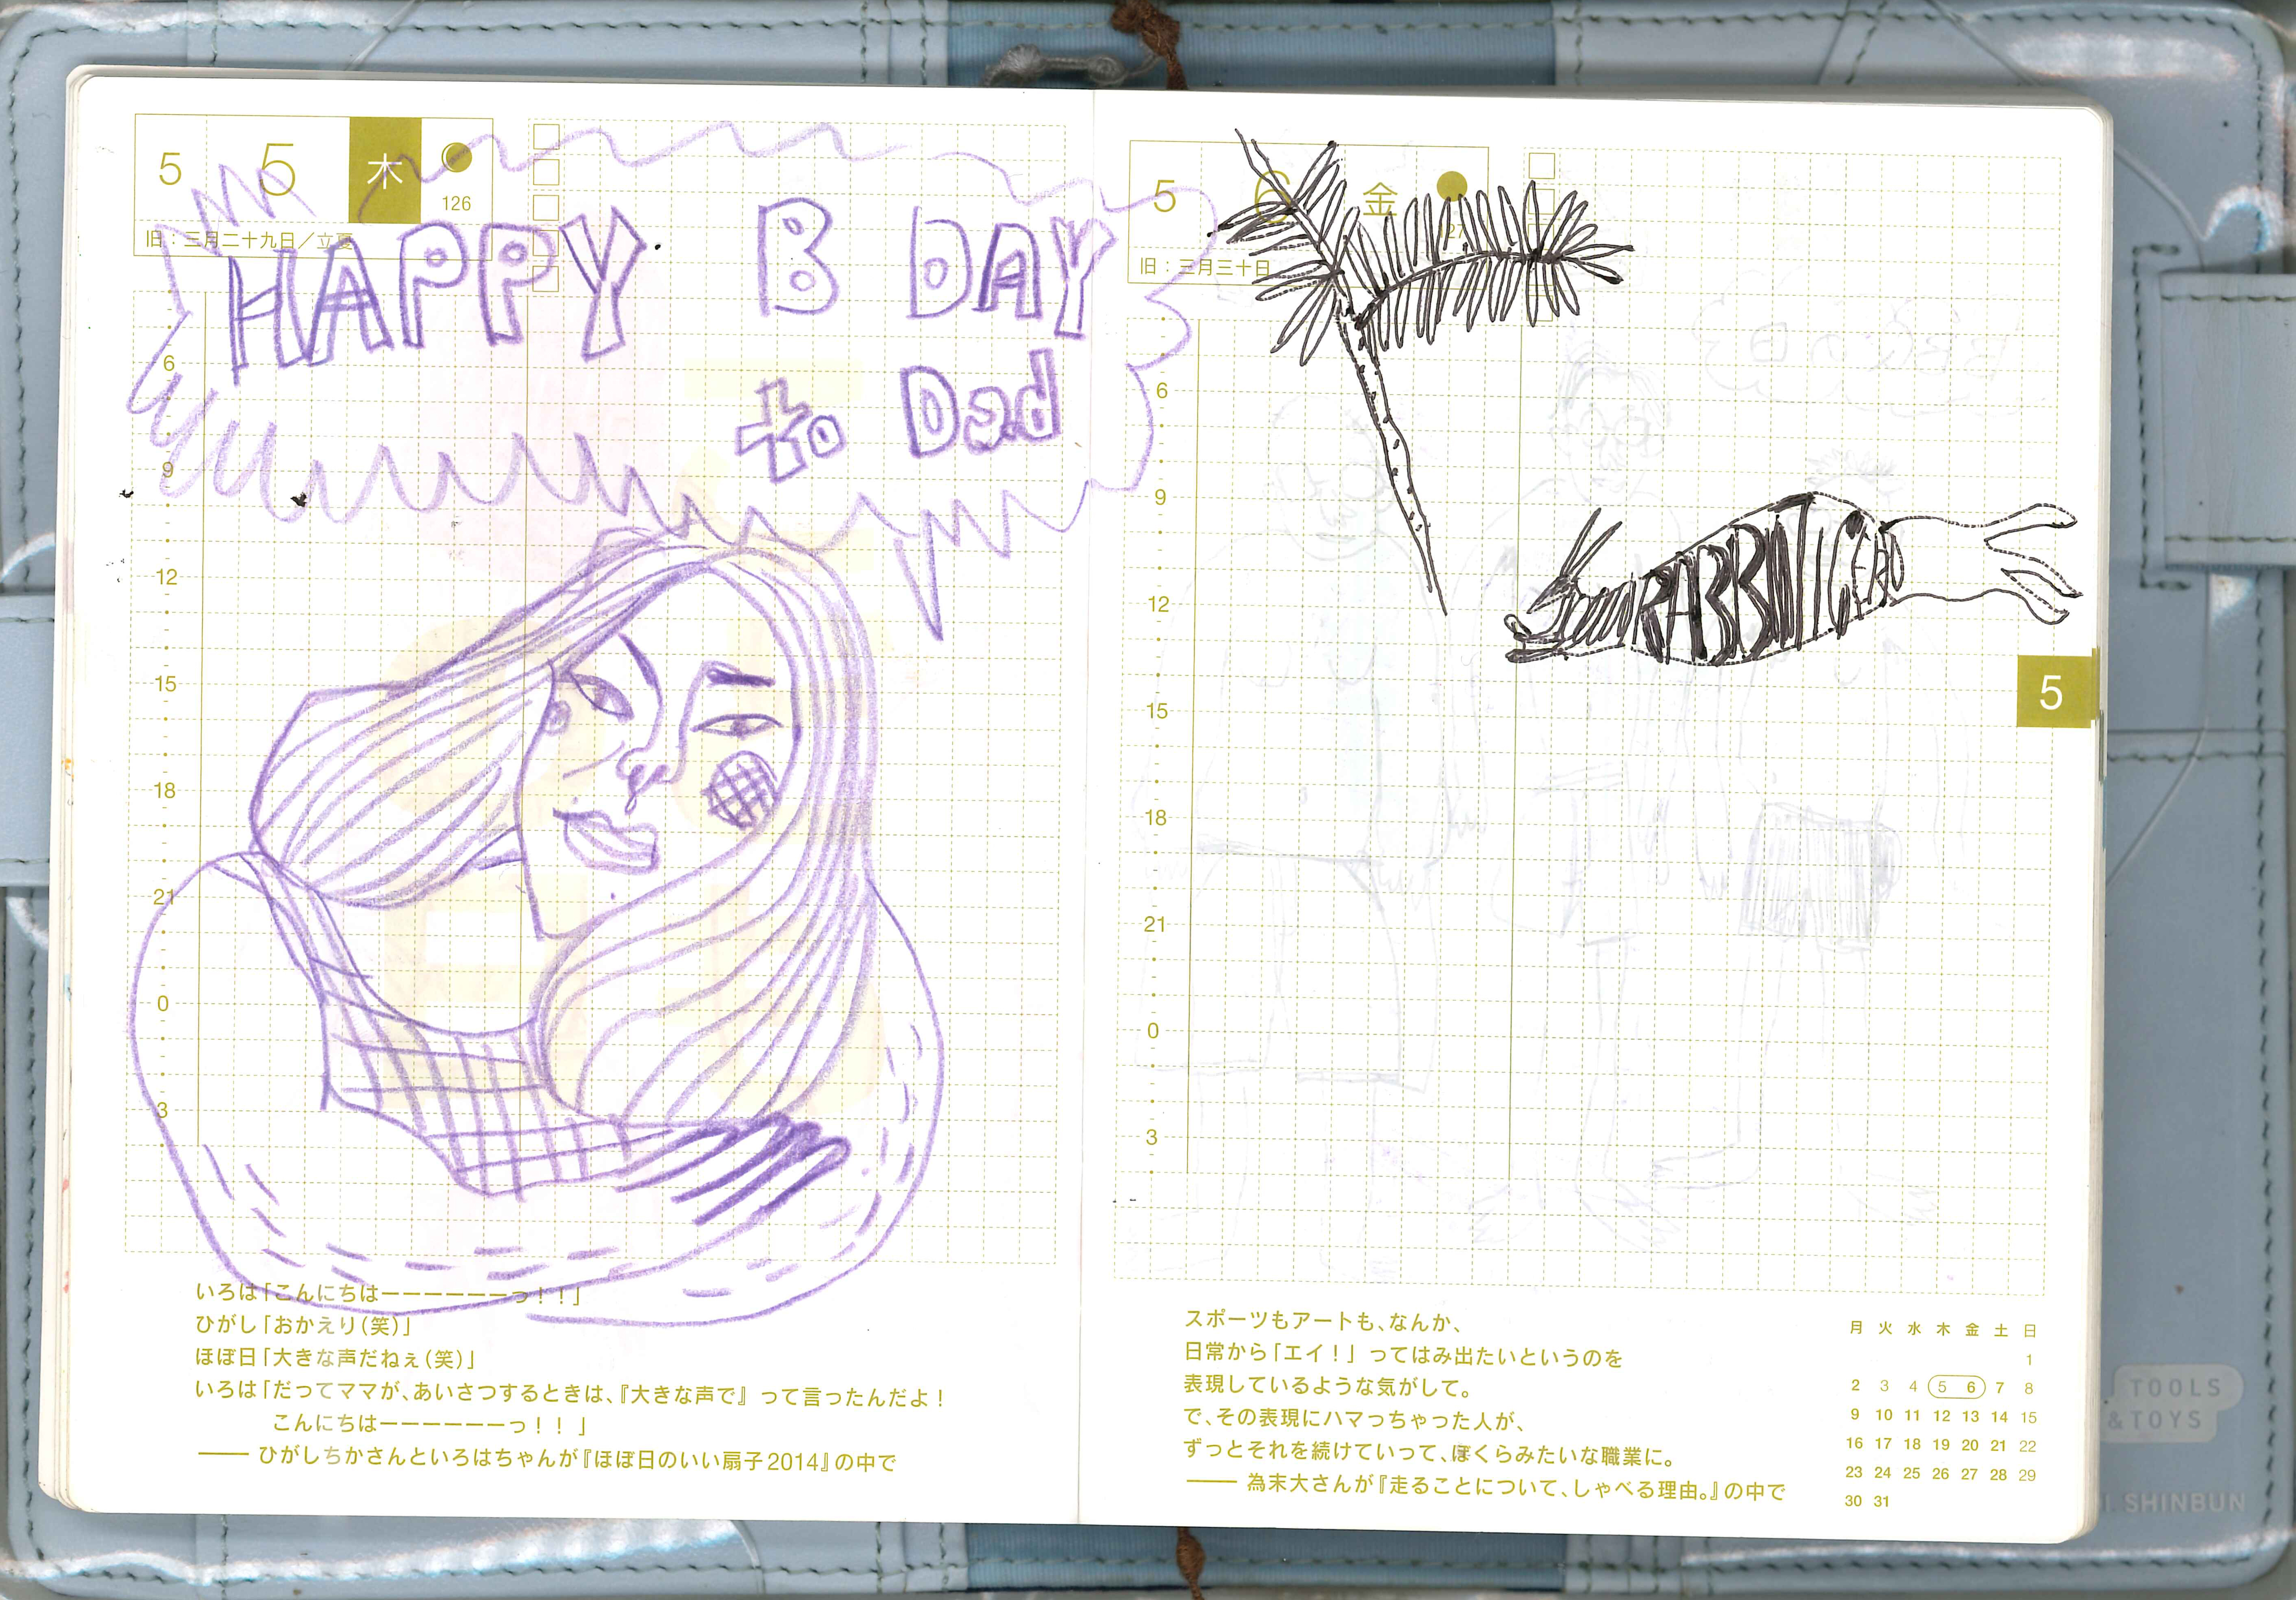 5 5 木
126
旧：三月二十九日／立夏
HAPPY B DAY
to Dad
6
9
12
15
18
21
0
3
いろは「こんにちはーーーーーーっ！！」
ひがし「おかえり（笑）」
ほぼ日「大きな声だねぇ（笑）」
いろは「だってママが、あいさつするときは、『大きな声で』って言ったんだよ！
こんにちはーーーーーーっ！！」
―― ひがしちかさんといろはちゃんが『ほぼ日のいい扇子2014』の中で
5 6 金
旧：三月三十日
6
9
12
15
18
21
0
3
5
スポーツもアートも、なんか、
日常から「エイ！」ってはみ出たいというのを
表現しているような気がして。
で、その表現にハマっちゃった人が、
ずっとそれを続けていって、ぼくらみたいな職業に。
―― 為末大さんが『走ることについて、しゃべる理由。』の中で
月 火 水 木 金 土 日
1
2 3 4 5 6 7 8
9 10 11 12 13 14 15
16 17 18 19 20 21 22
23 24 25 26 27 28 29
30 31
TOOLS
& TOYS
SHINBUN